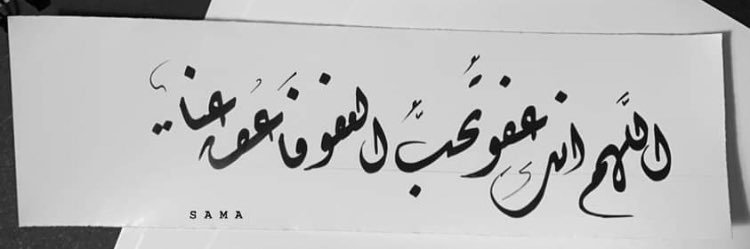 اللَّهم انك عفوٌّ تحبُّ العفو فَاعفُ عنا
SAMA